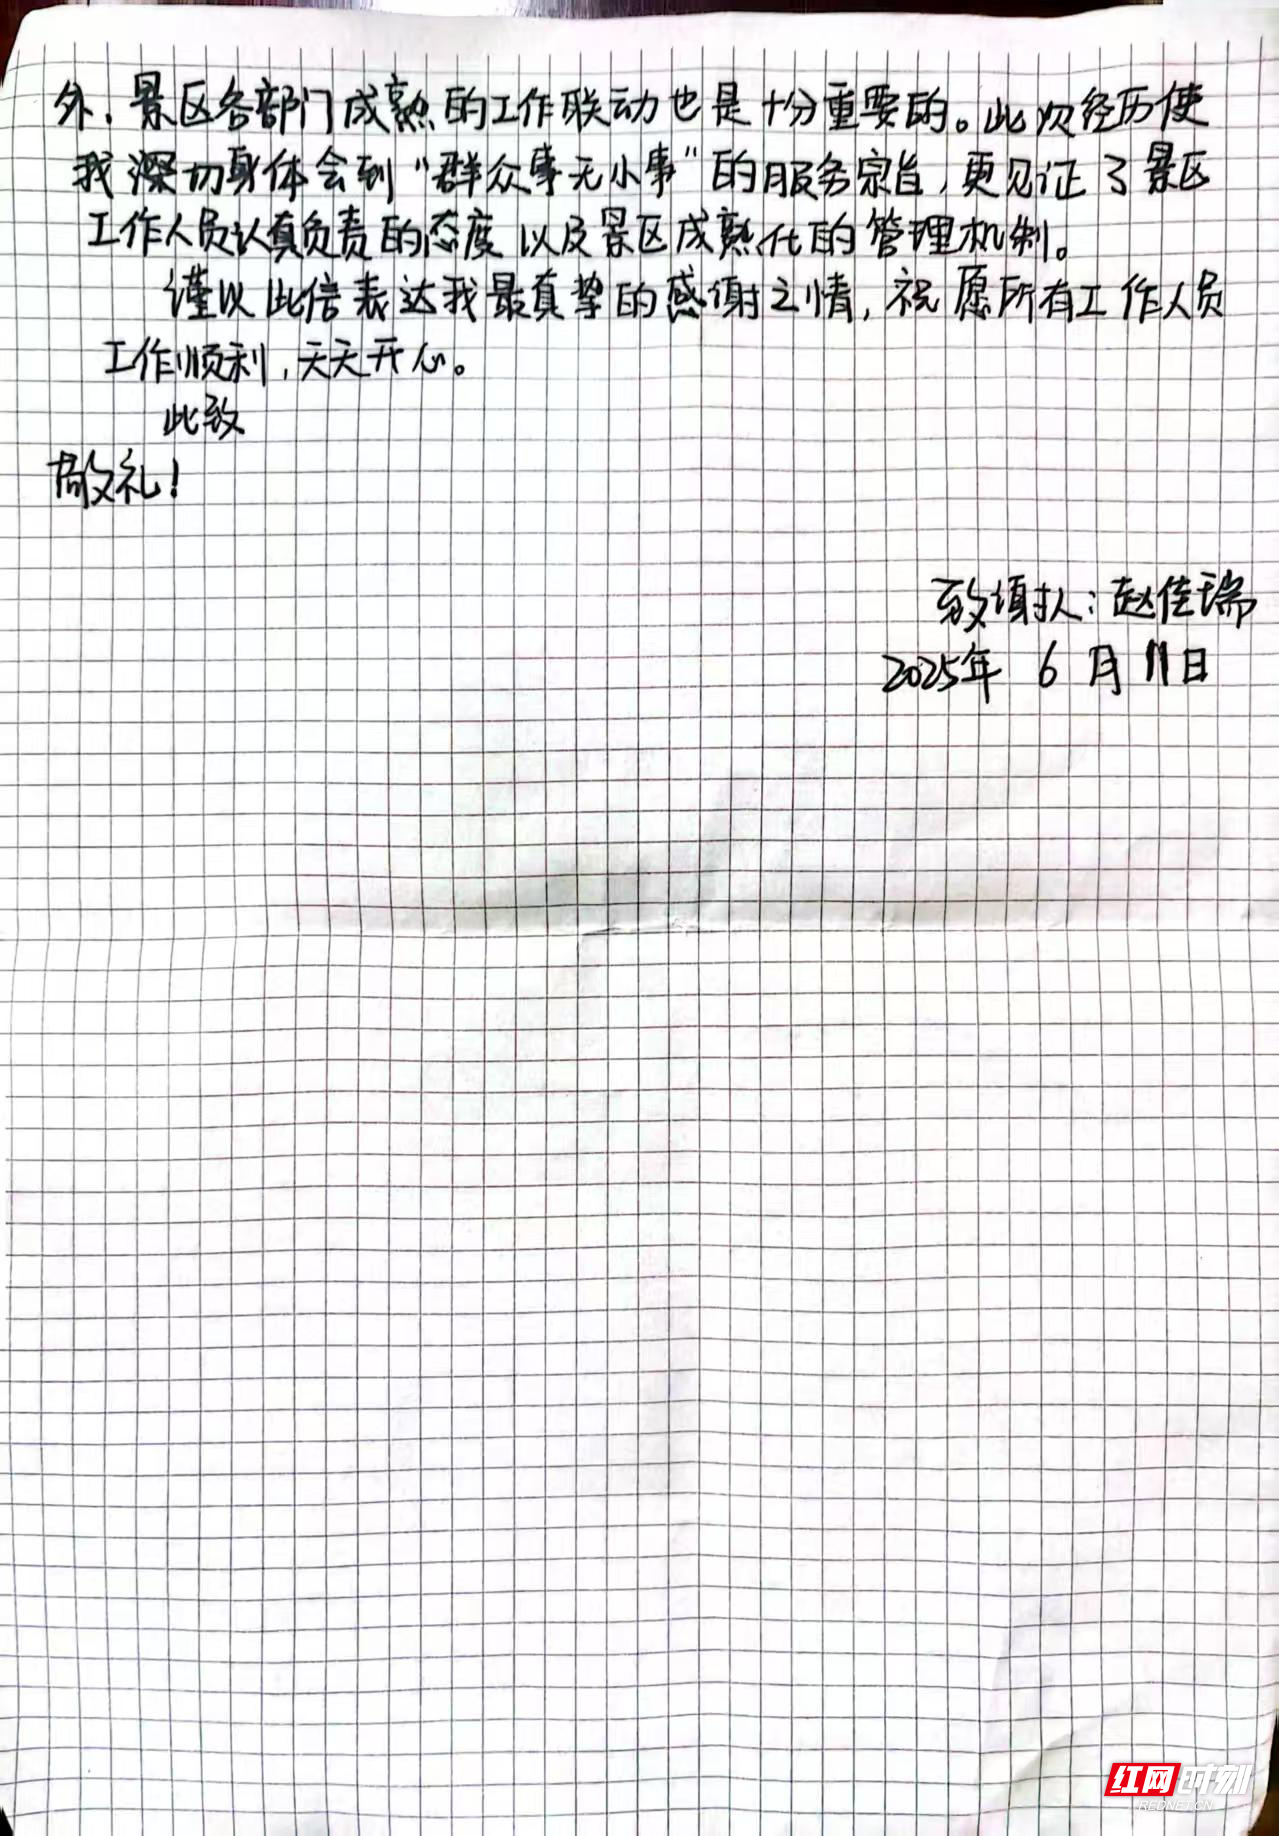 外，景区各部门成熟的工作联动也是十分重要的。此次经历使
我深切身体会到“群众事无小事”的服务宗旨，更见证了景区
工作人员认真负责的态度以及景区成熟化的管理机制。
谨以此信表达我最真挚的感谢之情，祝愿所有工作人员
工作顺利，天天开心。
此致
敬礼！
致谢人：赵佳瑞
2025年 6 月 11日
红网时刻
REDNET.CN